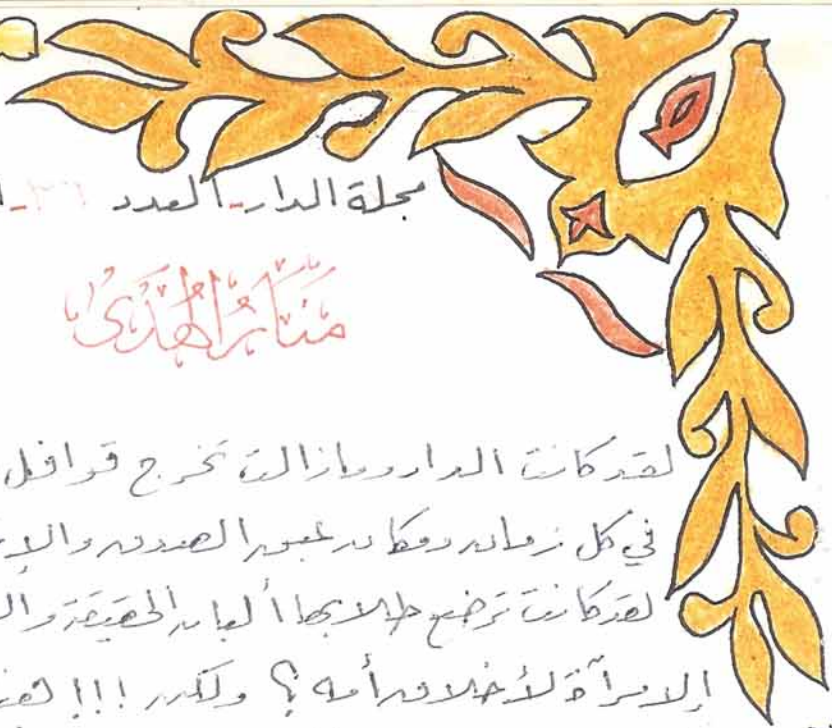 مجلة الدار - العدد ٢٦ -
مَنَائِرُ الْهُدَىٰ
لقد كانت الدار وما زالت تخرج قوافل
في كل زمان ومكان عبير الصدق
لقد كانت ترضع طلابها ألبان الحقيقة
إلا مرآة لأخلاق أمه ؟ ولكن !!!